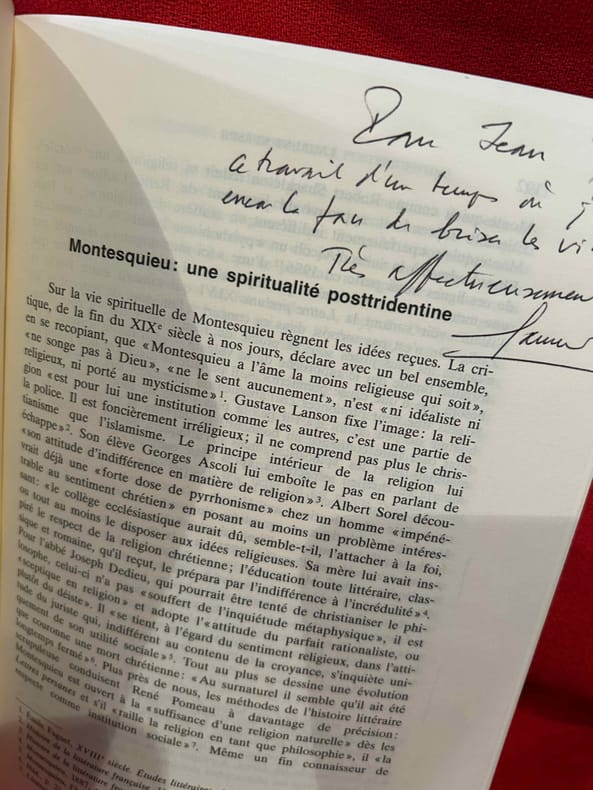 Pour Jean
ce travail d'un temps où j'
encor la fan de briser les vi
Très affectueusement
Montesquieu : une spiritualité posttridentine
Sur la vie spirituelle de Montesquieu règnent les idées reçues. La cri-
tique, de la fin du XIXe siècle à nos jours, déclare avec un bel ensemble,
en se recopiant, que « Montesquieu a l'âme la moins religieuse qui soit »,
« ne songe pas à Dieu », « ne le sent aucunement », n'est « ni idéaliste ni
religieux, ni porté au mysticisme » 1. Gustave Lanson fixe l'image : la reli-
gion « est pour lui une institution comme les autres, c'est une partie de
la police. Il est foncièrement irréligieux ; il ne comprend pas plus le chris-
tianisme que l'islamisme. Le principe intérieur de la religion lui
échappe » 2. Son élève Georges Ascoli lui emboîte le pas en parlant de
« son attitude d'indifférence en matière de religion » 3. Albert Sorel décou-
vrait déjà une « forte dose de pyrrhonisme » chez un homme « impéné-
trable au sentiment chrétien » en posant au moins un problème intéres-
sant : « le collège ecclésiastique aurait dû, semble-t-il, l'attacher à la foi,
ou tout au moins le disposer aux idées religieuses. Sa mère lui avait ins-
piré le respect de la religion chrétienne ; l'éducation toute littéraire, clas-
sique et romaine, qu'il reçut, le prépara par l'indifférence à l'incrédulité » 4.
Pour l'abbé Joseph Dedieu, qui pourrait être tenté de christianiser le phi-
losophe, celui-ci n'a pas « souffert de l'inquiétude métaphysique », il est
« sceptique en religion » et adopte l'« attitude du parfait rationaliste, ou
plutôt du déiste ». Il « se tient, à l'égard du sentiment religieux, dans l'atti-
tude du juriste qui, indifférent au contenu de la croyance, s'inquiète uni-
quement de son utilité sociale » 5. Tout au plus se dessine une évolution
que couronne une mort chrétienne : « Au surnaturel il semble qu'il ait été
longtemps fermé » 6. Plus près de nous, les méthodes de l'histoire littéraire
scrupuleuse conduisent René Pomeau à davantage de précision :
Montesquieu est ouvert à la « suffisance d'une religion naturelle » dès les
Lettres persanes et s'il « raille la religion en tant que philosophie », il « la
respecte comme institution sociale » 7. Même un fin connaisseur de
1. Émile Faguet, XVIIIe siècle. Études littéraires